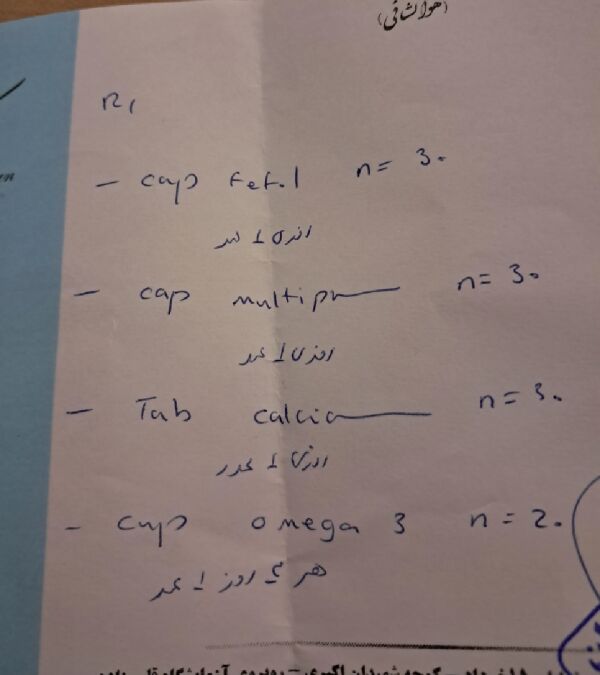 (هوالشافی)
R,
- cap Fefol n= 30
روزی 1 عدد
- cap multip n= 30
روزی 1 عدد
- Tab calcia n= 30
روزی 1 عدد
- cap omega 3 n= 20
روز 1 عدد